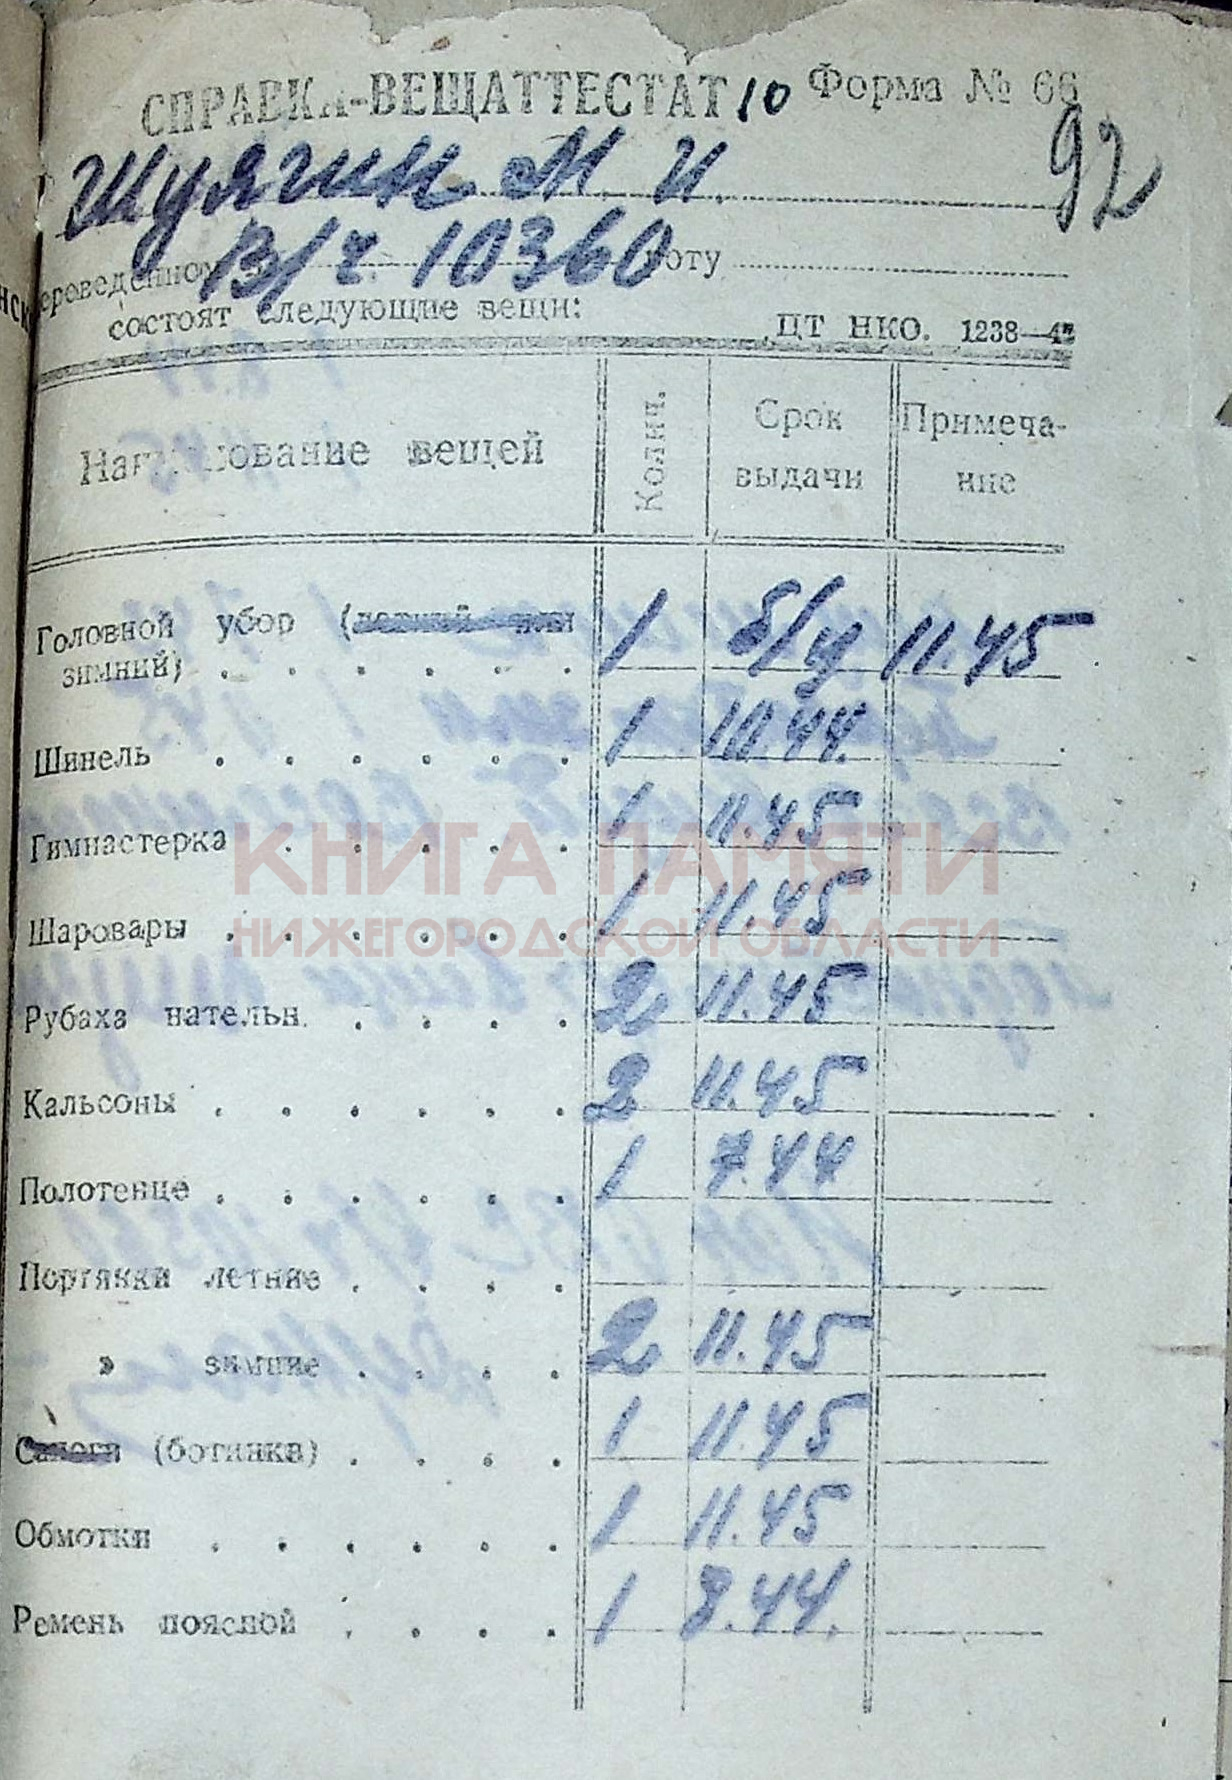 СПРАВКА-ВЕЩАТТЕСТАТ 10 Форма № 66
92
Шулягин М. И.
В/ч. 10360 роту
состоят следующие вещи:
ЦТ НКО. 1238—4
Наименование вещей Колич. Срок выдачи Примечание
Головной убор (летний или зимний) 1 б/у 11.45
Шинель 1 10.44.
Гимнастерка 1 11.45
КНИГА ПАМЯТИ
Шаровары 1 11.45
НИЖЕГОРОДСКОЙ ОБЛАСТИ
Рубаха нательн. 2 11.45
Кальсоны 2 11.45
Полотенце 1 7.44
Портянки летние
» зимние 2 11.45
Сапоги (ботинки) 1 11.45
Обмотки 1 11.45
Ремень поясной 1 8.44.